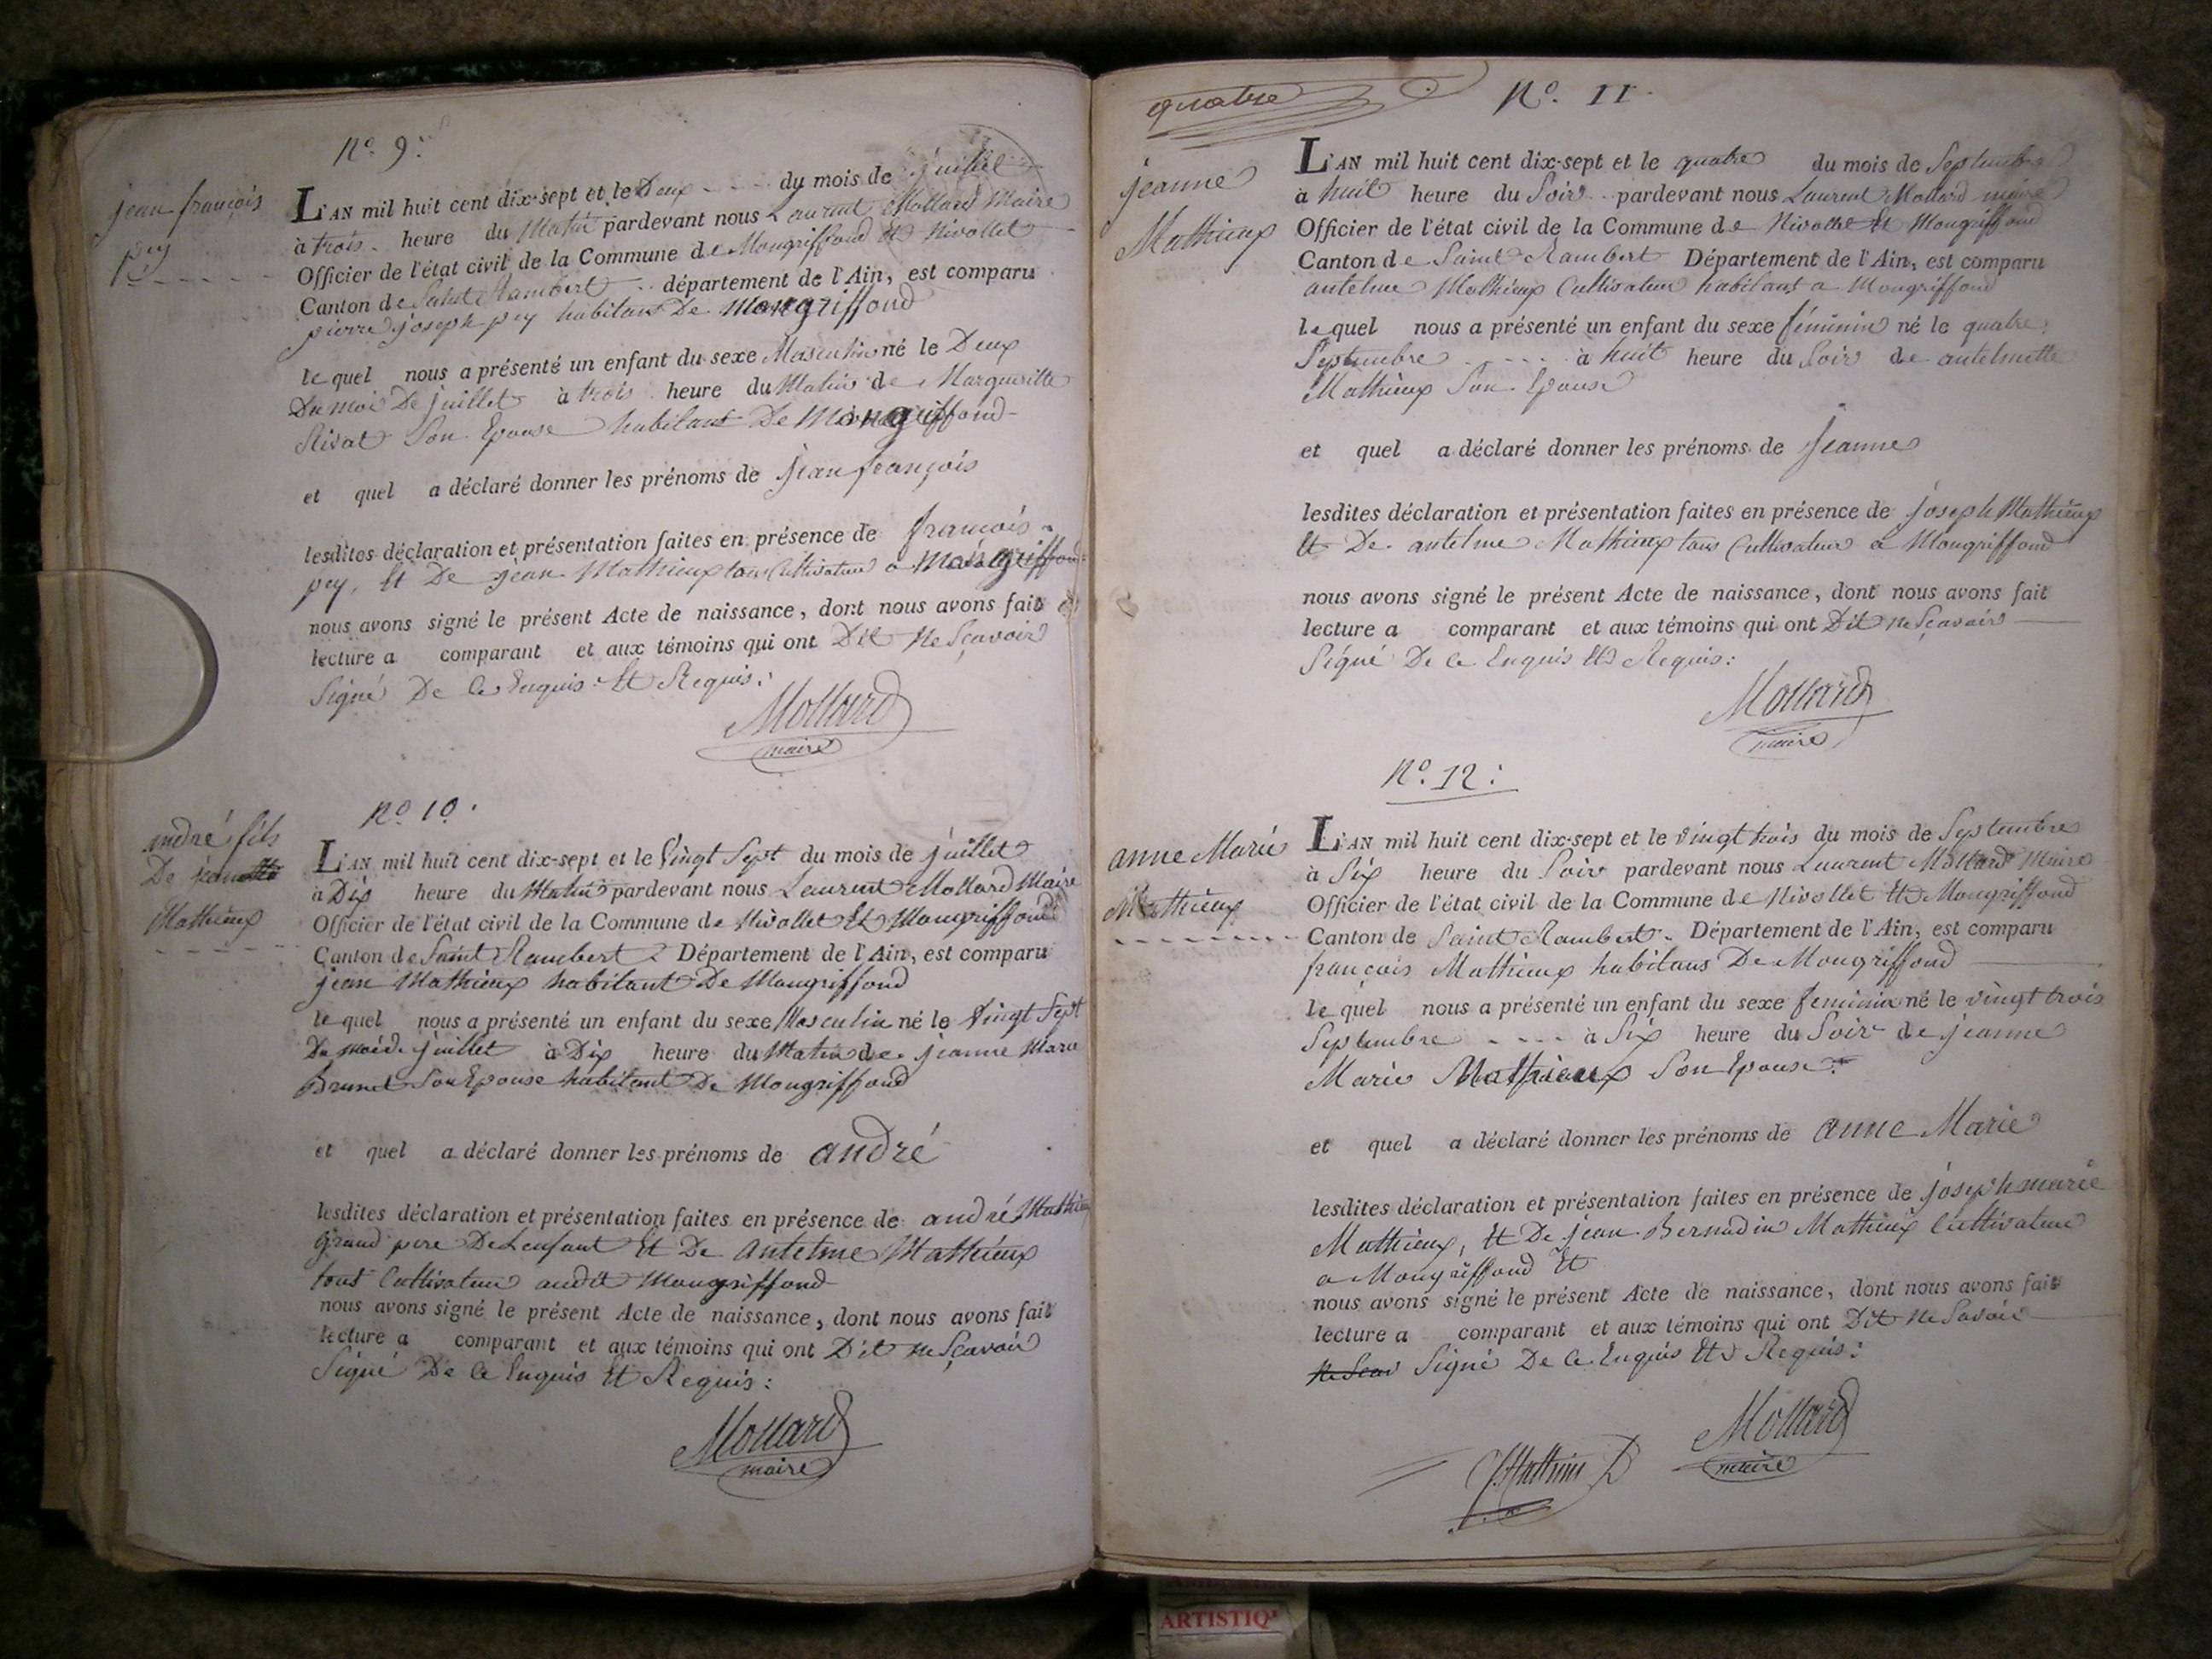 N.o 9.
jean françois
pey
L'AN mil huit cent dix-sept et le Deux du mois de juillet
à trois heure du Matin pardevant nous Laurent Mollard Maire
Officier de l'état civil de la Commune de Mongriffond et Nivollet
Canton de Saint Rambert département de l'Ain, est comparu
pierre joseph pey habitant De Mongriffond
lequel nous a présenté un enfant du sexe Masculin né le Deux
Du moi De juillet à trois heure du Matin de Margueritte
Rivat Son Epouse habitant De Mongriffond
et quel a déclaré donner les prénoms de jean françois
lesdites déclaration et présentation faites en présence de françois
pey, Et De jean Mathieux tous Cultivateur a Mongriffond
nous avons signé le présent Acte de naissance, dont nous avons fait
lecture a comparant et aux témoins qui ont Dit Ne Sçavoir
Signé De Ce Enquis Et Requis:
Mollard
maire
N.o 10.
andré fils
De jean
Mathieux
L'AN mil huit cent dix-sept et le Vingt Sept du mois de juillet
à Dix heure du Matin pardevant nous Laurent Mollard Maire
Officier de l'état civil de la Commune de Nivollet Et Mongriffond
Canton de Saint Rambert Département de l'Ain, est comparu
jean Mathieux habitant De Mongriffond
lequel nous a présenté un enfant du sexe Masculin né le Vingt Sept
Du moi de juillet à Dix heure du Matin de jeanne Marie
Brunet Son Epouse habitant De Mongriffond
et quel a déclaré donner les prénoms de andré
lesdites déclaration et présentation faites en présence de andré Mathieux
Grand pere De Lenfant Et De Antelme Mathieux
tous Cultivateur audit Mongriffond
nous avons signé le présent Acte de naissance, dont nous avons fait
lecture a comparant et aux témoins qui ont Dit Ne Sçavoir
Signé De Ce Enquis Et Requis:
Mollard
maire
quatre
N.o 11.
jeanne
Mathieux
L'AN mil huit cent dix-sept et le quatre du mois de Septembre
à huit heure du Soir pardevant nous Laurent Mollard maire
Officier de l'état civil de la Commune de Nivollet Et Mongriffond
Canton de Saint Rambert Département de l'Ain, est comparu
antelme Mathieux Cultivateur habitant a Mongriffond
lequel nous a présenté un enfant du sexe féminin né le quatre
Septembre à huit heure du Soir de antelmette
Mathieux Son Epouse
et quel a déclaré donner les prénoms de jeanne
lesdites déclaration et présentation faites en présence de joseph Mathieux
Et De antelme Mathieux tous Cultivateur a Mongriffond
nous avons signé le présent Acte de naissance, dont nous avons fait
lecture a comparant et aux témoins qui ont Dit Ne Sçavoir
Signé De Ce Enquis Et Requis:
Mollard
maire
N.o 12:
anne Marie
Mathieux
L'AN mil huit cent dix-sept et le Vingt trois du mois de Septembre
à Six heure du Soir pardevant nous Laurent Mollard Maire
Officier de l'état civil de la Commune de Nivollet Et Mongriffond
Canton de Saint Rambert Département de l'Ain, est comparu
françois Mathieux habitans De Mongriffond
lequel nous a présenté un enfant du sexe feminin né le vingt trois
Septembre à Six heure du Soir de jeanne
Marie Mathieux Son Epouse
et quel a déclaré donner les prénoms de anne Marie
lesdites déclaration et présentation faites en présence de joseph marie
Mathieux, Et De jean Bernadin Mathieux Cultivateur
a Mongriffond Et
nous avons signé le présent Acte de naissance, dont nous avons fait
lecture a comparant et aux témoins qui ont Dit Ne Savoir
Signé De Ce Enquis Et Requis:
Mollard
maire
ARTISTIQ